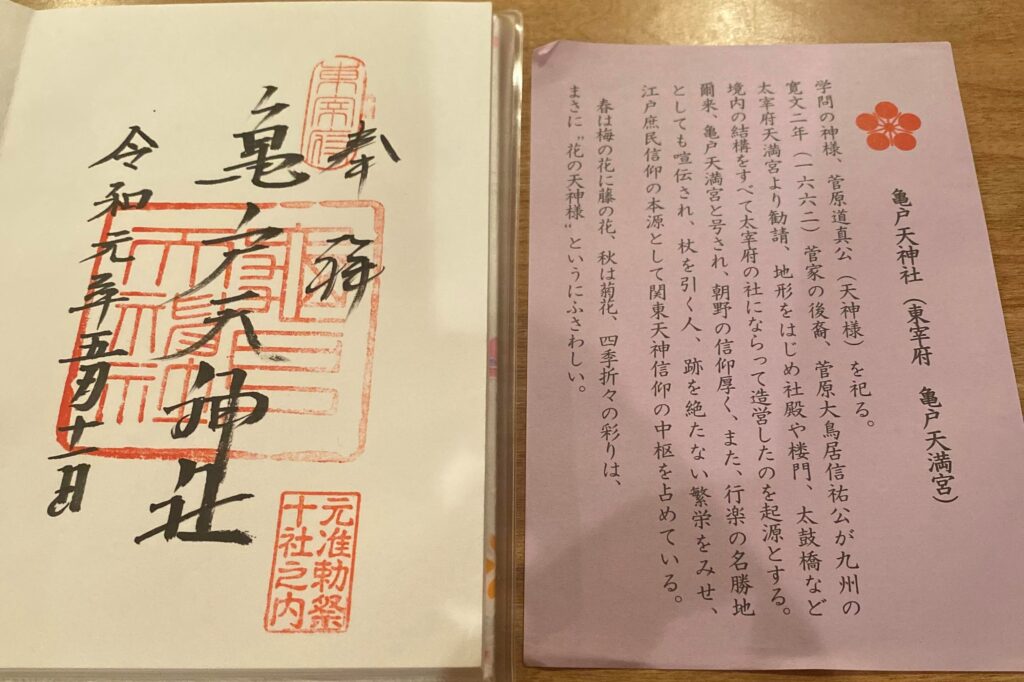 東宰府
奉拝
亀戸天神社
令和元年五月十一日
元准勅祭
十社之内
亀戸天神社(東宰府 亀戸天満宮)
学問の神様、菅原道真公(天神様)を祀る。
寛文二年(一六六二)菅家の後裔、菅原大鳥居信祐公が九州の
太宰府天満宮より勧請、地形をはじめ社殿や楼門、太鼓橋など
境内の結構をすべて太宰府の社にならって造営したのを起源とする。
爾来、亀戸天満宮と号され、朝野の信仰厚く、また、行楽の名勝地
としても喧伝され、杖を引く人、跡を絶たない繁栄をみせ、
江戸庶民信仰の本源として関東天神信仰の中枢を占めている。
春は梅の花に藤の花、秋は菊花、四季折々の彩りは、
まさに〝花の天神様〟というにふさわしい。